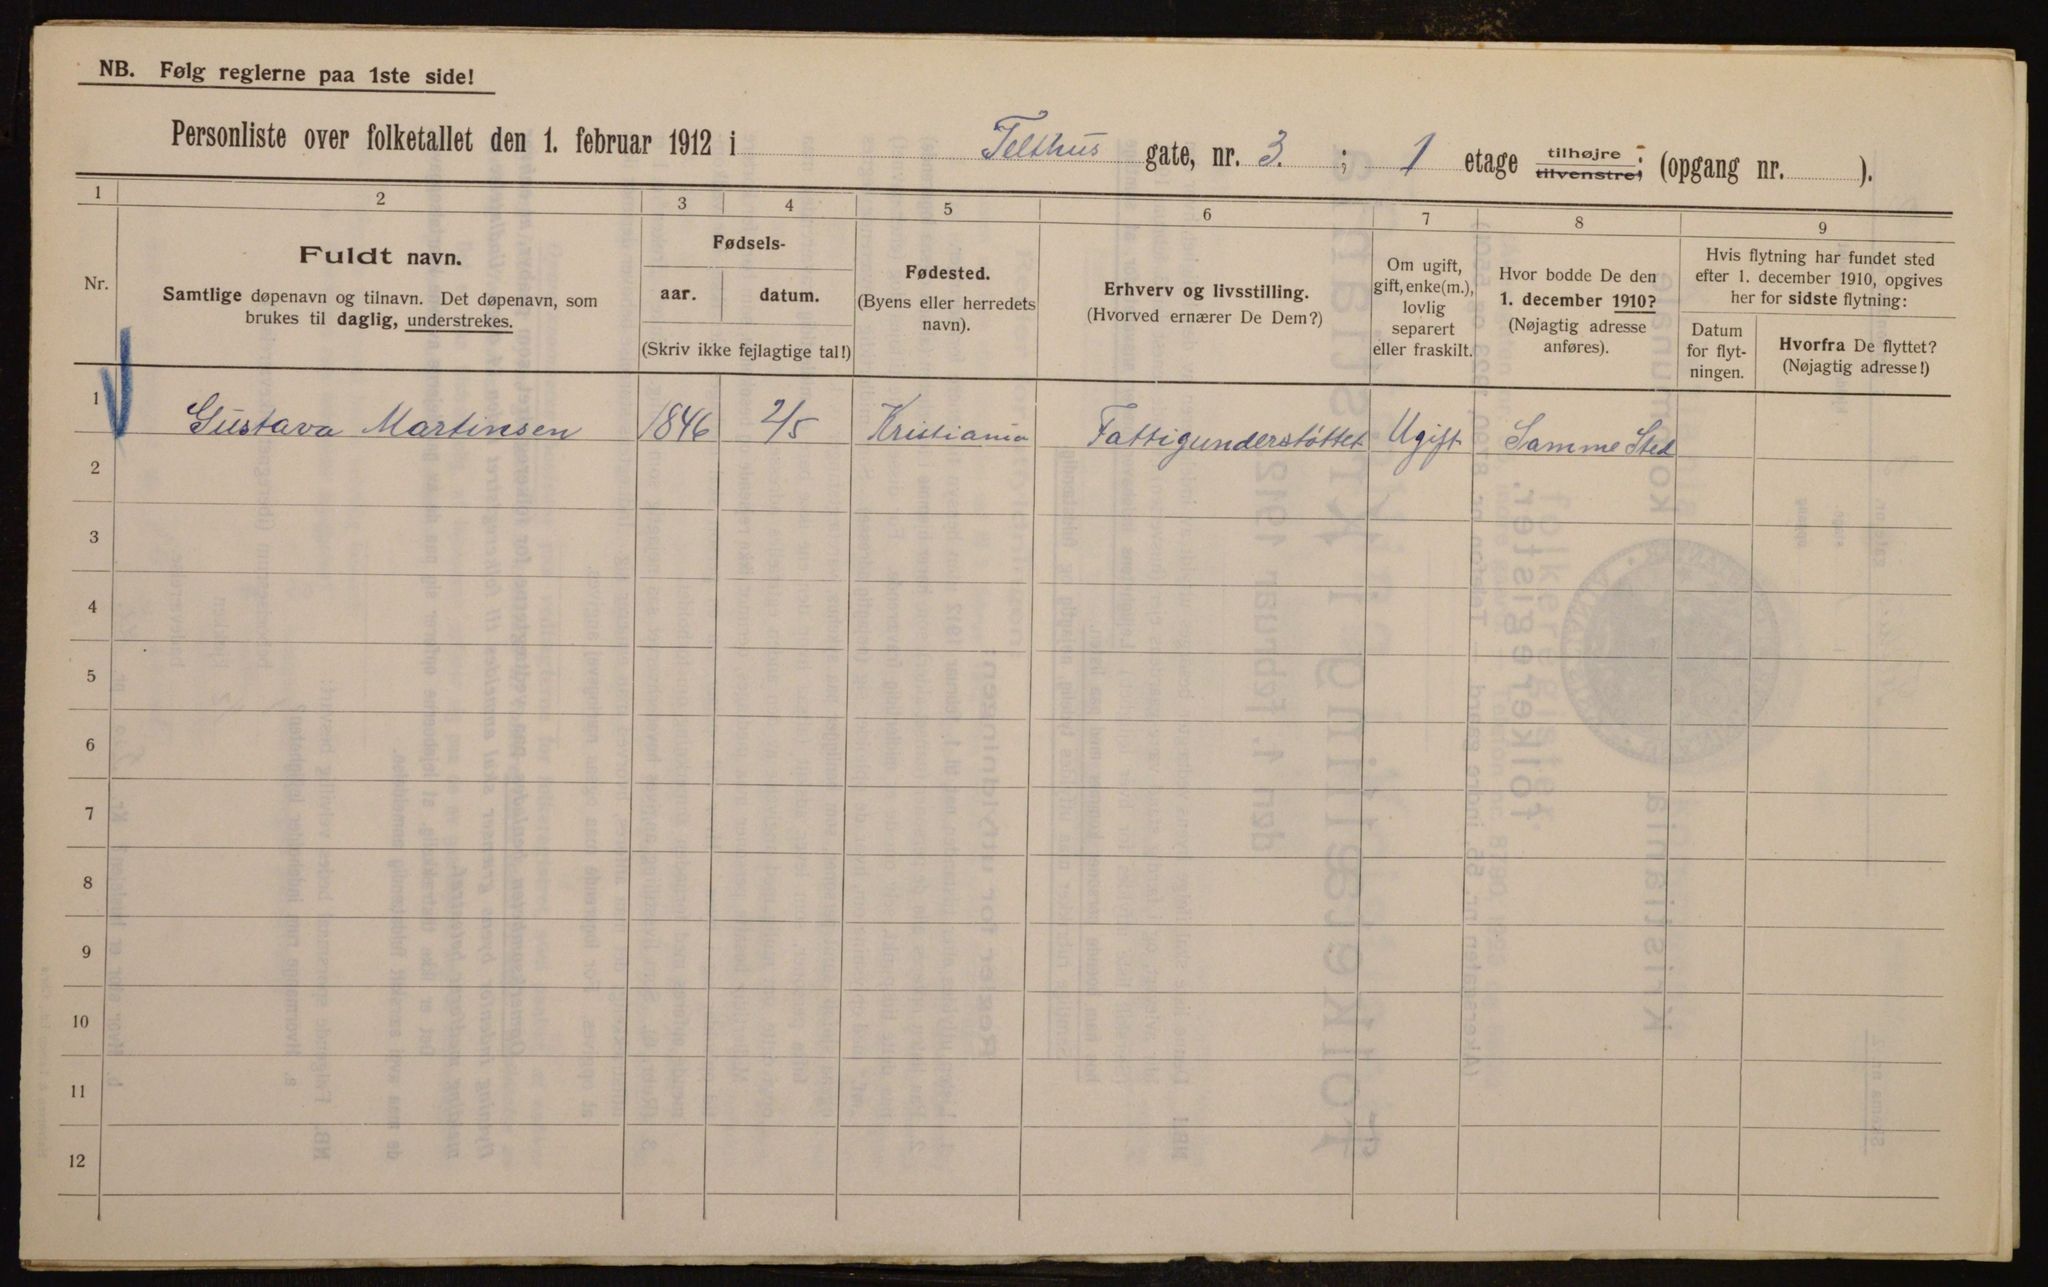 NB. Følg reglerne paa 1ste side!
Personliste over folketallet den 1. februar 1912 i Telthus gate, nr. 3. ; 1 etage tilhøjre: tilvenstre; (opgang nr. ).
1 2 3 4 5 6 7 8 9
Nr.
Fuldt navn.
Samtlige døpenavn og tilnavn. Det døpenavn, som
brukes til daglig, understrekes.
Fødsels-
aar. datum.
(Skriv ikke fejlagtige tal!)
Fødested.
(Byens eller herredets
navn).
Erhverv og livsstilling.
(Hvorved ernærer De Dem?)
Om ugift,
gift, enke(m.),
lovlig
separert
eller fraskilt.
Hvor bodde De den
1. december 1910?
(Nøjagtig adresse
anføres).
Hvis flytning har fundet sted
efter 1. december 1910, opgives
her for sidste flytning:
Datum
for flyt-
ningen.
Hvorfra De flyttet?
(Nøjagtig adresse!)
1 Gustava Martinsen 1846 2/5 Kristiania Fattigunderstøttet Ugift Samme Sted
2
3
4
5
6
7
8
9
10
11
12